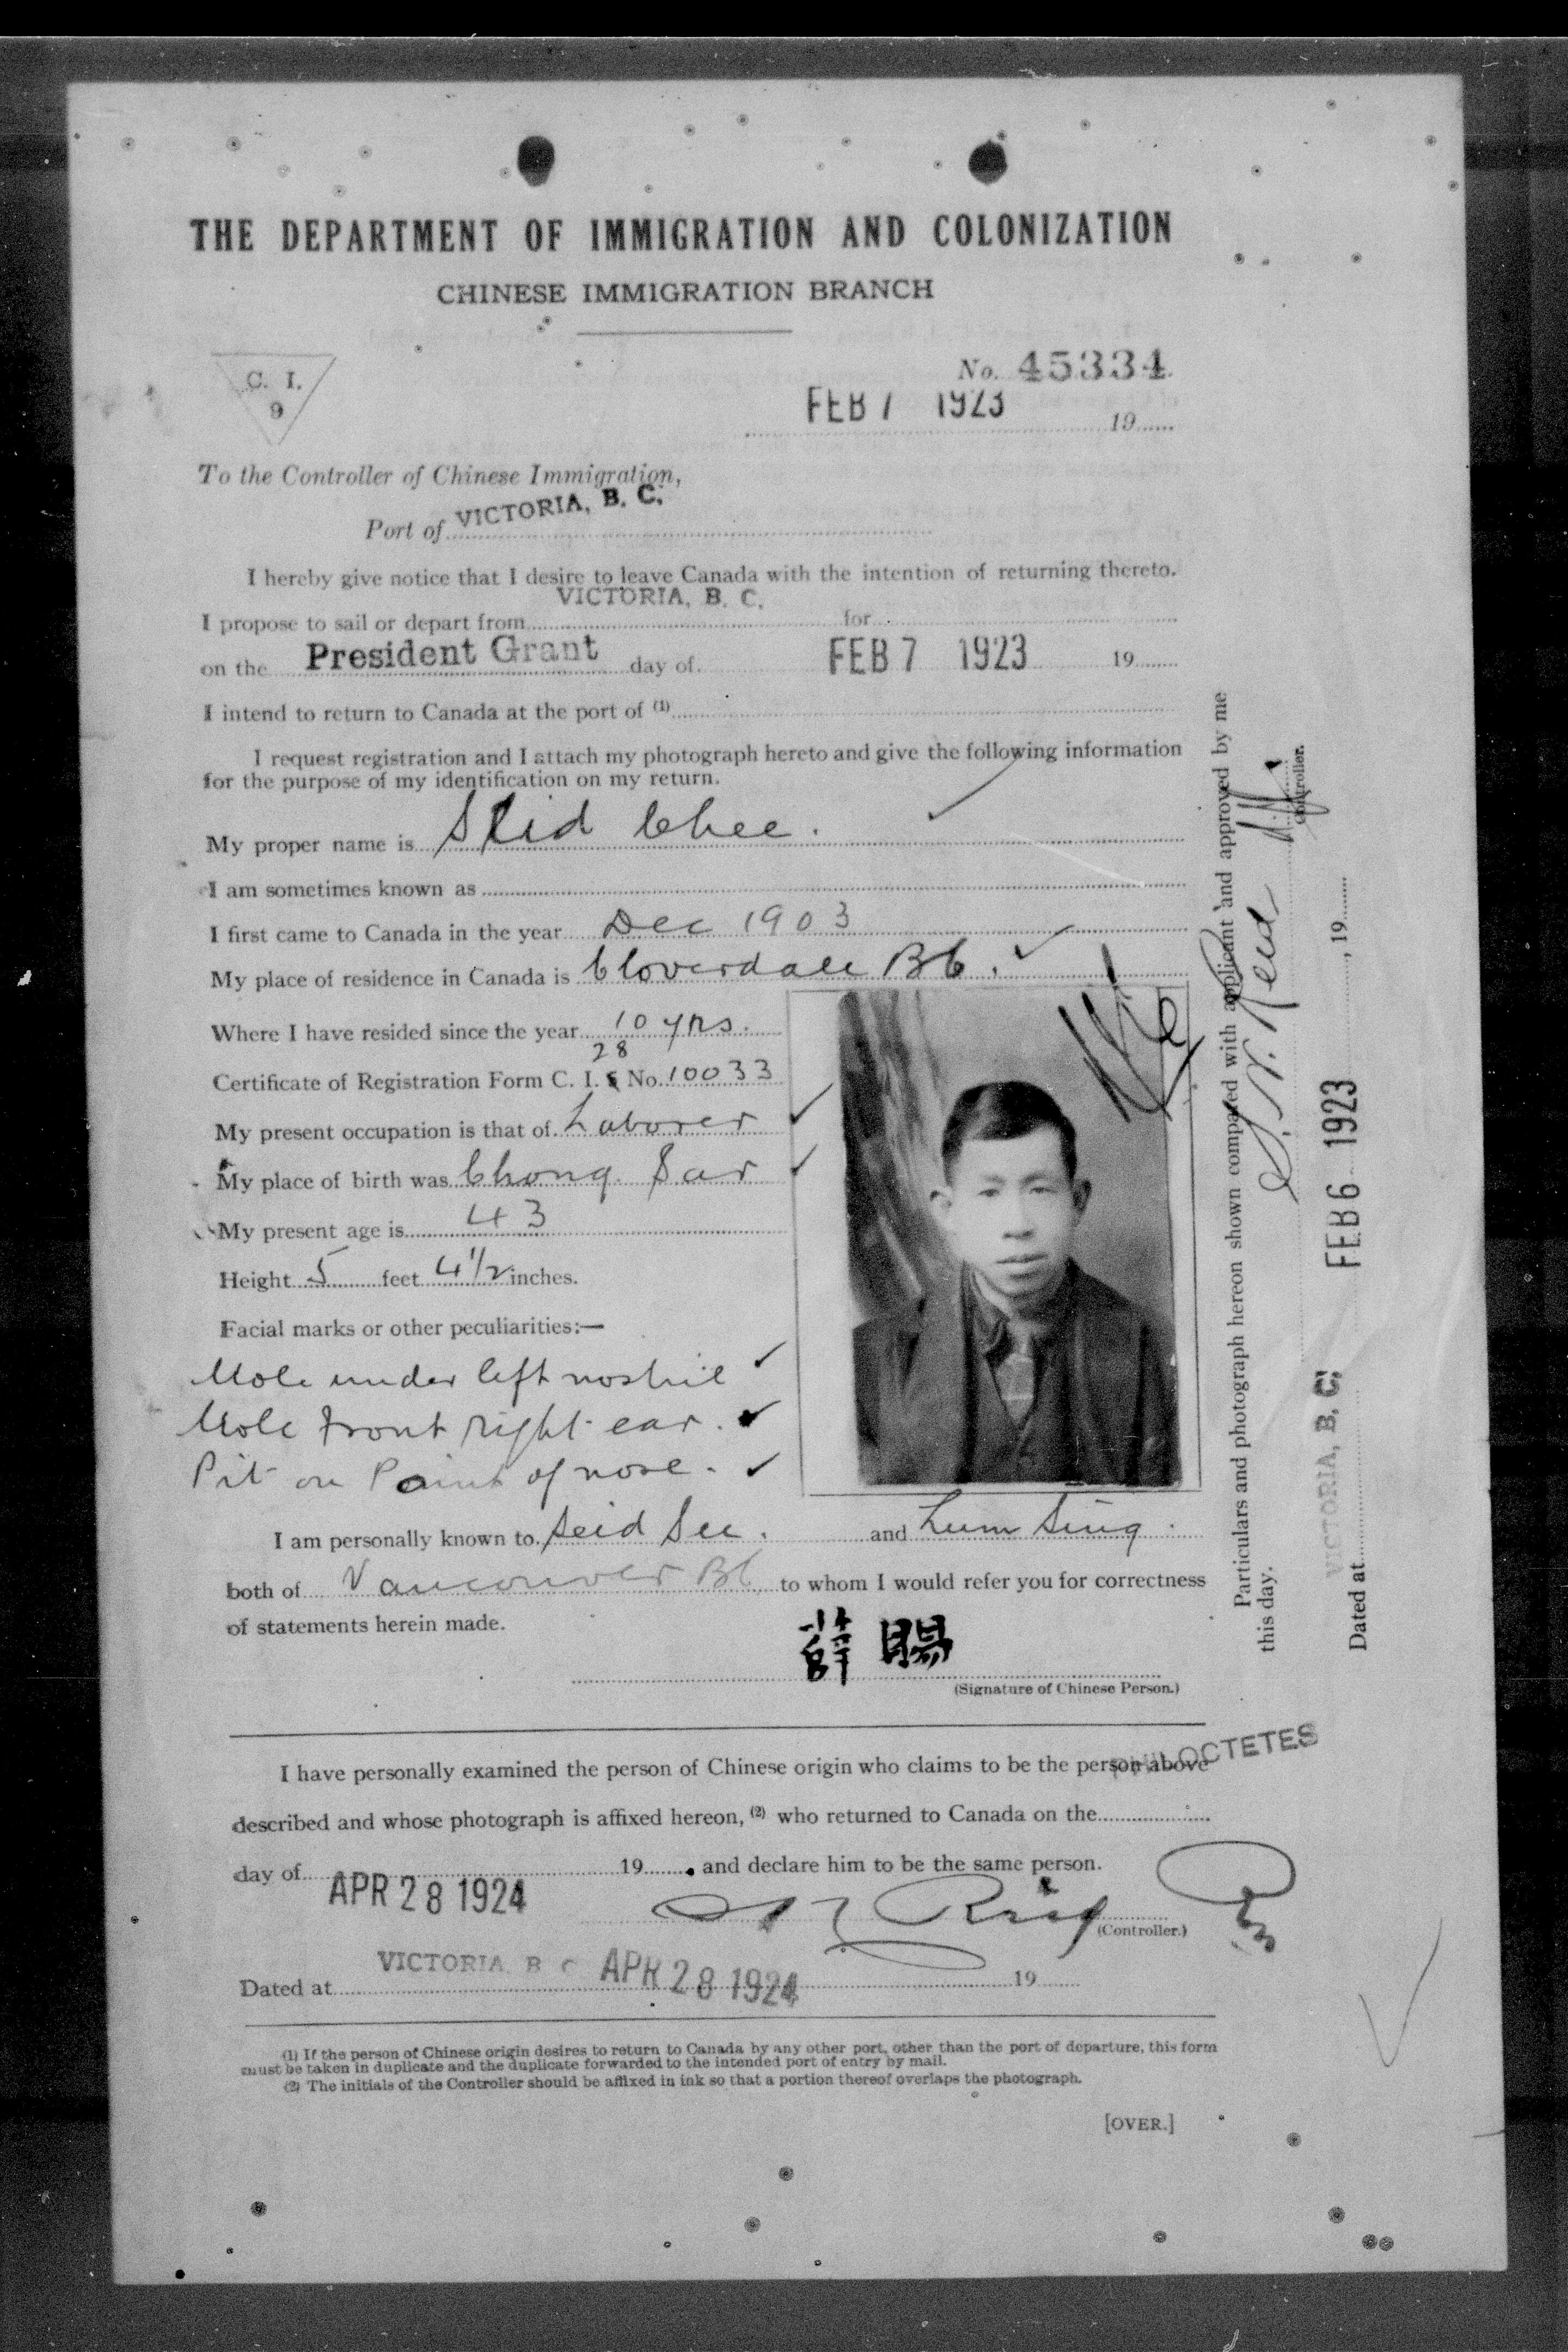 THE DEPARTMENT OF IMMIGRATION AND COLONIZATION
CHINESE IMMIGRATION BRANCH
C. I.
9
No. 45334
FEB 7 1923 19
To the Controller of Chinese Immigration,
Port of VICTORIA, B. C.
I hereby give notice that I desire to leave Canada with the intention of returning thereto.
I propose to sail or depart from VICTORIA, B. C. for
on the President Grant day of FEB 7 1923 19
I intend to return to Canada at the port of (1)
I request registration and I attach my photograph hereto and give the following information
for the purpose of my identification on my return.
My proper name is Seid Chee.
I am sometimes known as
I first came to Canada in the year Dec 1903
My place of residence in Canada is Cloverdale BC.
Where I have resided since the year 10 yrs.
28
Certificate of Registration Form C. I. 5 No. 10033
My present occupation is that of Laborer
My place of birth was Chong Sar
My present age is 43
Height 5 feet 4 1/2 inches.
Facial marks or other peculiarities:—
Mole under left nostril
Mole front right ear.
Pit on Point of nose.
I am personally known to Seid See. and Lum Sing.
both of Vancouver BC to whom I would refer you for correctness
of statements herein made.
薛賜
(Signature of Chinese Person.)
PHILOCTETES
I have personally examined the person of Chinese origin who claims to be the person above
described and whose photograph is affixed hereon, (2) who returned to Canada on the
day of APR 28 1924 19 and declare him to be the same person.
(Controller.)
Dated at VICTORIA B C APR 28 1924 19
(1) If the person of Chinese origin desires to return to Canada by any other port, other than the port of departure, this form
must be taken in duplicate and the duplicate forwarded to the intended port of entry by mail.
(2) The initials of the Controller should be affixed in ink so that a portion thereof overlaps the photograph.
[OVER.]
Particulars and photograph hereon shown compared with applicant and approved by me
this day.
Controller.
Dated at VICTORIA, B. C. FEB 6 1923, 19